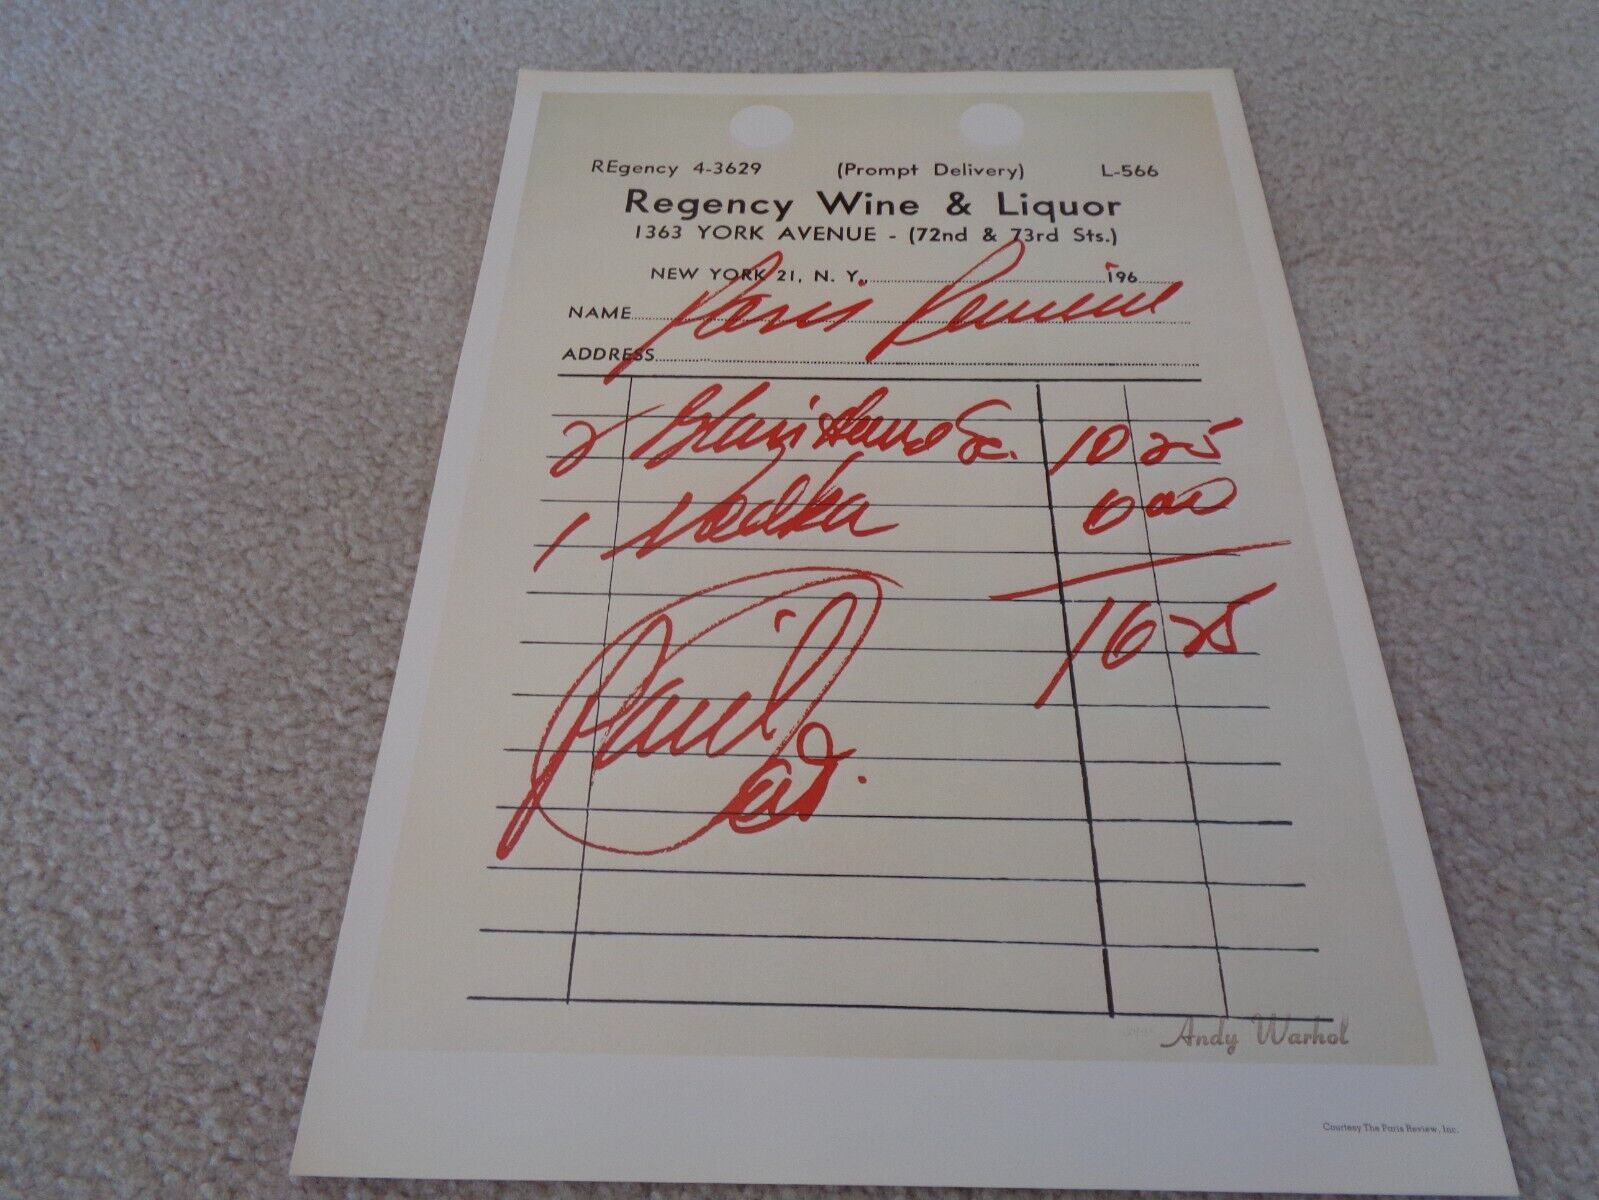 REgency 4-3629 (Prompt Delivery) L-566
Regency Wine & Liquor
1363 YORK AVENUE - (72nd & 73rd Sts.)
NEW YORK 21, N. Y., 196
NAME Paris Review
ADDRESS
2 Sc. 10 25
1 Vodka 6 00
16 25
Paid
Andy Warhol
Courtesy The Paris Review, Inc.